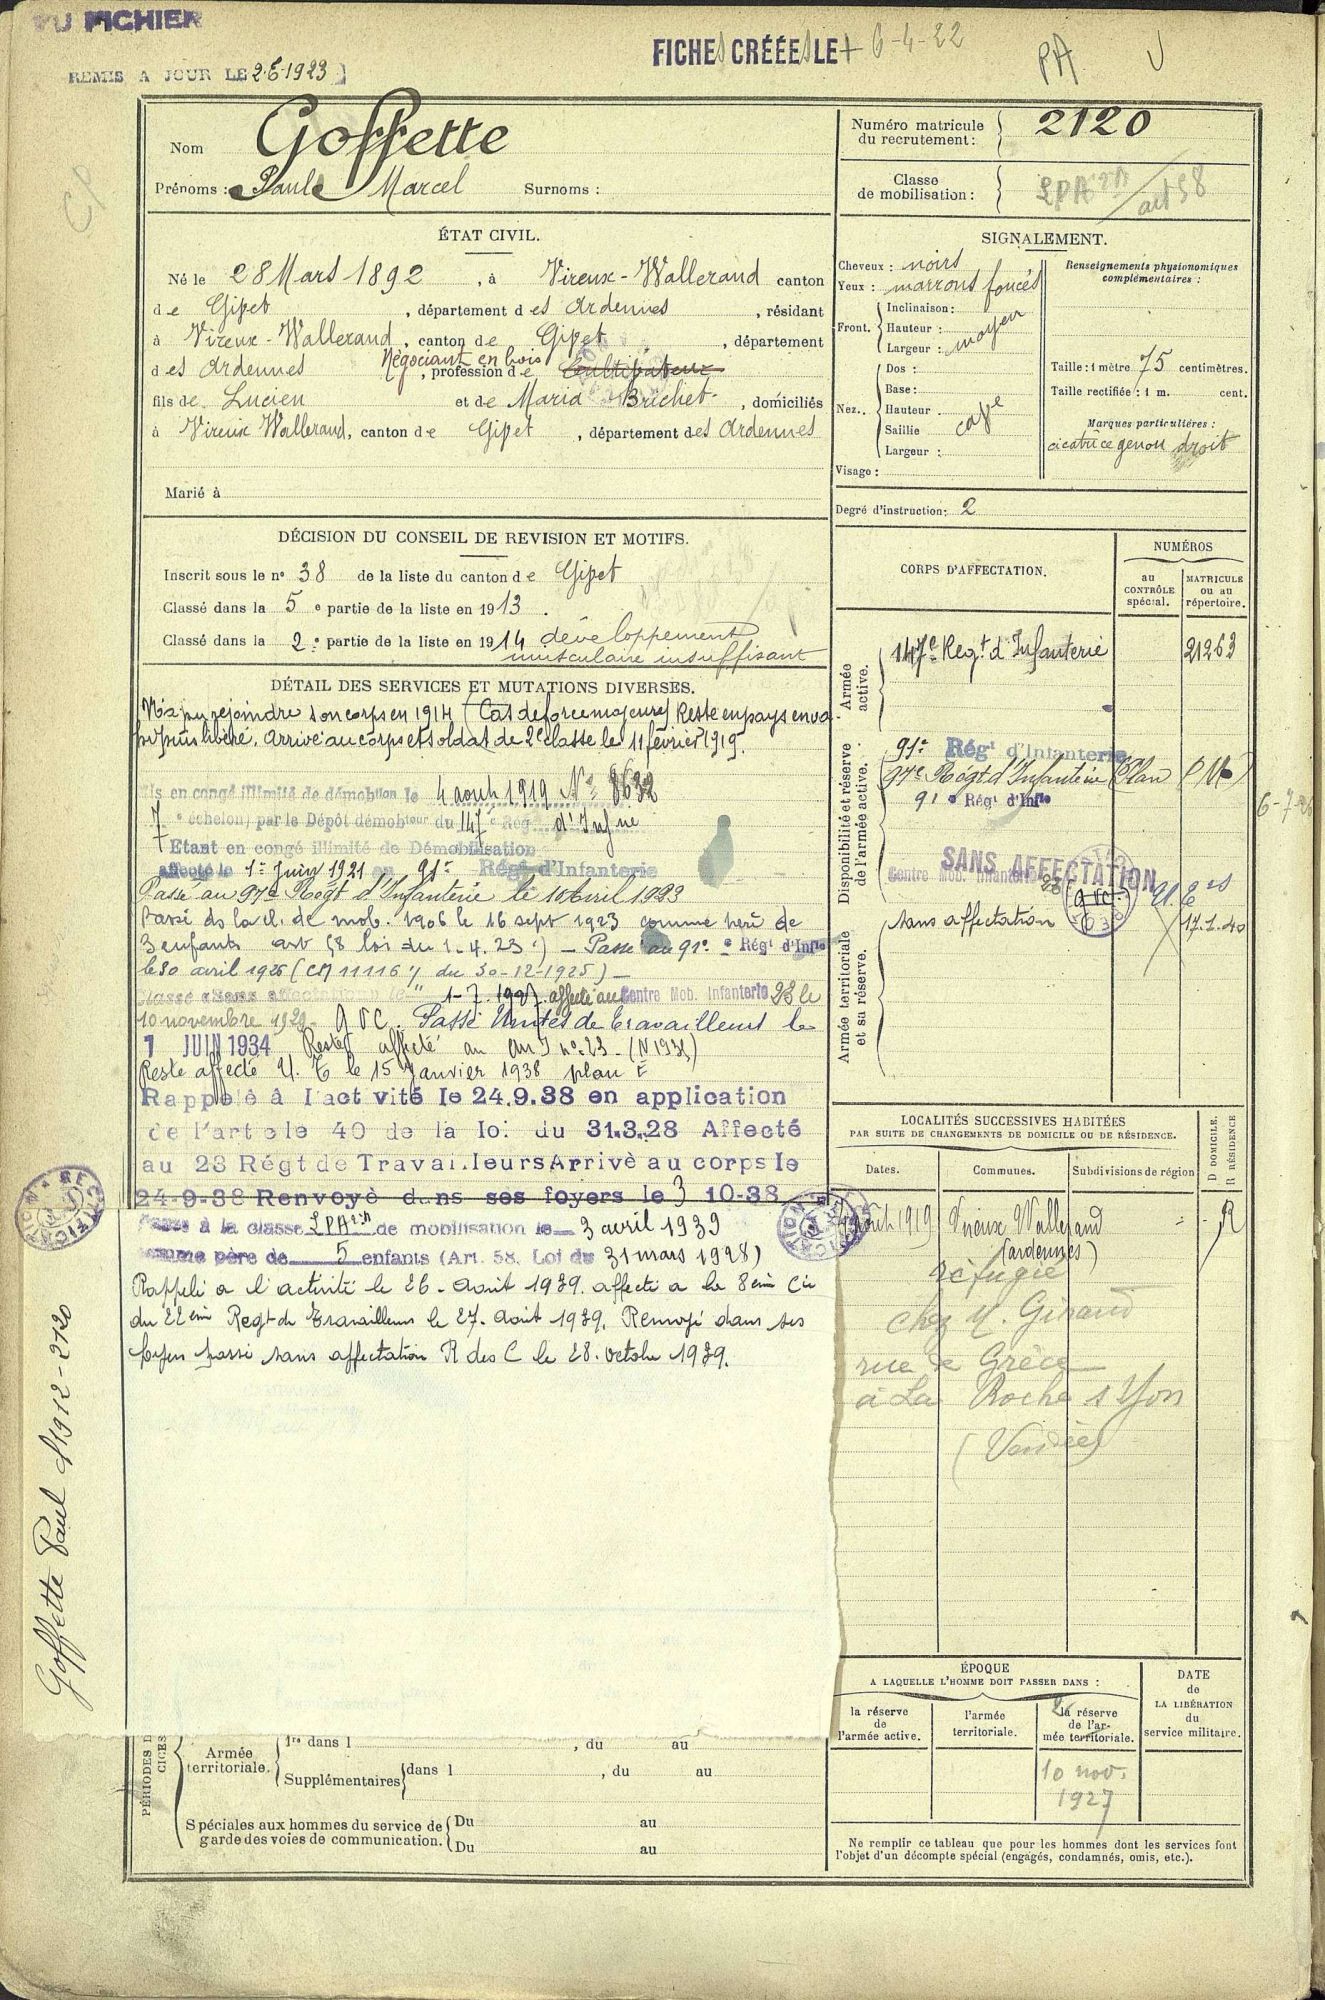 DU FICHIER
REMIS A JOUR LE 2-6-1923
FICHES CRÉÉES LE 6-4-22
PA
Nom Goffette
Prénoms : Paul Marcel Surnoms :
Numéro matricule du recrutement : 2120
Classe de mobilisation :
LPA art 58
ÉTAT CIVIL.
Né le 28 Mars 1892, à Vireux-Wallerand canton
de Givet, département des Ardennes, résidant
à Vireux-Wallerand, canton de Givet, département
des Ardennes, profession de Cultivateur
Négociant en bois
fils de Lucien et de Maria Brichet, domiciliés
à Vireux Wallerand, canton de Givet, département des Ardennes
Marié à
SIGNALEMENT.
Cheveux : noirs
Yeux : marrons foncés
Front. Inclinaison :
Hauteur :
Largeur : moyen
Nez. Dos :
Base :
Hauteur
Saillie cave
Largeur :
Visage :
Renseignements physionomiques
complémentaires :
Taille : 1 mètre 75 centimètres.
Taille rectifiée : 1 m. cent.
Marques particulières :
cicatrice genou droit
Degré d'instruction : 2
DÉCISION DU CONSEIL DE REVISION ET MOTIFS.
Inscrit sous le nº 38 de la liste du canton de Givet
Classé dans la 5e partie de la liste en 1913.
Classé dans la 2e partie de la liste en 1914 développement
musculaire insuffisant
DÉTAIL DES SERVICES ET MUTATIONS DIVERSES.
N'a pu rejoindre son corps en 1914 (Cas de force majeure) Resté en pays enva
hi puis libéré. Arrivé au corps et soldat de 2e classe le 11 février 1919.
Mis en congé illimité de démobilon le 4 août 1919 Nº 8632
7e échelon, par le Dépôt démobteur du 147e Rég d'Infrie
Etant en congé illimité de Démobilisation
affecté le 1er Juin 1921 au 91e Régt d'Infanterie
Passé au 97e Régt d'Infanterie le 10 Avril 1923
Passé ds la cl. de mob. 1906 le 16 sept 1923 comme père de
3 enfants art 58 loi du 1-4-23) - Passé au 91e Régt d'Infie
le 30 avril 1926 (CM 11116 du 30-12-1925) -
Classé "Sans affectation" le 1-7-1927. affecté au Centre Mob. Infanterie 23 le
10 novembre 1929. GVC. Passé Unités de travailleurs le
1 JUIN 1934 Resté affecté au CMI nº 23 -
Reste affecté U. T. le 15 janvier 1938 plan E
Rappelé à l'activité le 24.9.38 en application
de l'article 40 de la loi du 31.3.28 Affecté
au 23 Régt de Travailleurs Arrivé au corps le
24-9-38 Renvoyé dans ses foyers le 3 10-38
Passé à la classe LPA de mobilisation le 3 avril 1939
comme père de 5 enfants (Art. 58. Loi du 31 mars 1928)
Rappelé à l'activité le 26 - Août 1939. affecté à la 8ème Cie
du 22ème Regt de Travailleurs le 27. Août 1939. Renvoyé dans ses
foyers passé sans affectation R des C le 28. octobre 1939.
Goffette Paul cl 1912 - 2120
RECTIFICATION
CORPS D'AFFECTATION.
NUMÉROS
au CONTRÔLE spécial.
MATRICULE ou au répertoire.
Armée active.
147e Regt d'Infanterie 21263
Disponibilité et réserve de l'armée active.
91e Régt d'Infanterie
97e Régt d'Infanterie (Plan
91e Régt d'Infie
SANS AFFECTATION
Centre Mob. Infanterie 23
(GVC)
Armée territoriale et sa réserve.
sans affectation 17-1-40
LOCALITÉS SUCCESSIVES HABITÉES
PAR SUITE DE CHANGEMENTS DE DOMICILE OU DE RÉSIDENCE.
Dates. Communes. Subdivisions de région
D DOMICILE.
R RÉSIDENCE
août 1919 Vireux Wallerand R
(ardennes)
réfugié
chez M. Giraud
rue de Grèce
à La Roche s Yon
(Vendée)
ÉPOQUE
A LAQUELLE L'HOMME DOIT PASSER DANS :
la réserve de l'armée active.
l'armée territoriale.
la réserve de l'armée territoriale.
10 nov. 1927
DATE de LA LIBÉRATION du service militaire.
Armée territoriale. 1re dans l , du au
Supplémentaires dans l , du au
Spéciales aux hommes du service de
garde des voies de communication.
Du au
Du au
Ne remplir ce tableau que pour les hommes dont les services font
l'objet d'un décompte spécial (engagés, condamnés, omis, etc.).